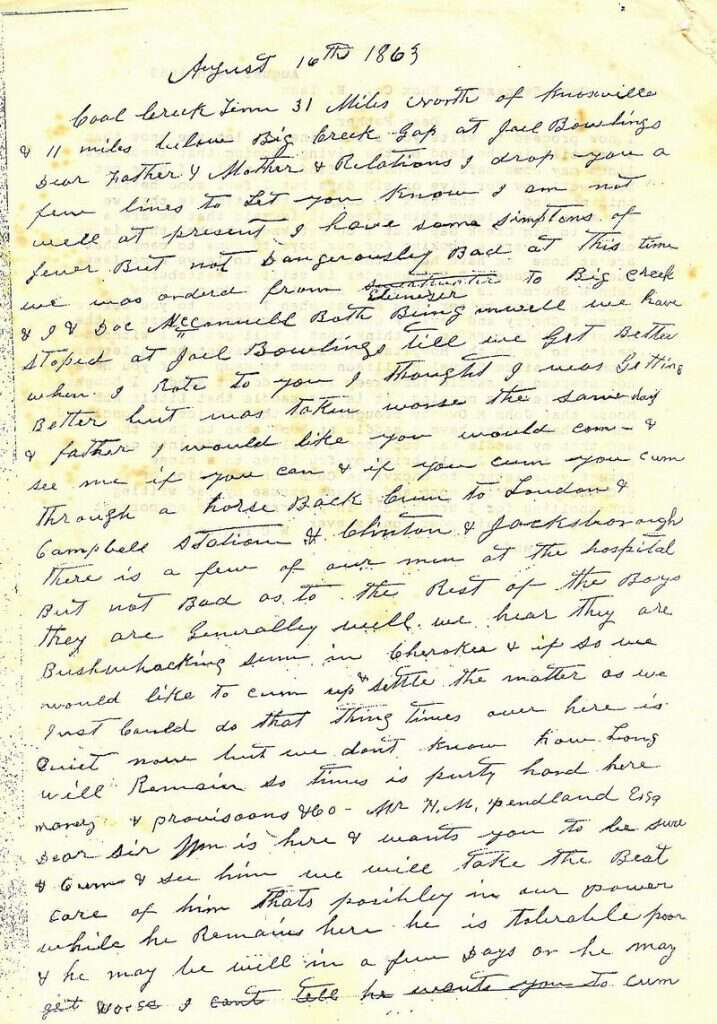 August 16th 1863
Coal Creek Tenn 31 Miles North of Knoxville
& 11 miles below Big Creek Gap at Joel Bowlings
Dear Father & Mother & Relations I drop you a
few lines to Let you Know I am not
well at present I have some simptons of
fever But not Dangerously Bad at this time
we was ordered from Ebenezer to Big Creek
& I & Doc McConnell Both Being unwell we have
stoped at Joel Bowlings till we Get Better
when I Rote to you I thought I was Getting
Better but was taken worse the same day
& father I would like you would com- &
see me if you can & if you cum you cum
through a horse Back Cum to Loudon &
Campbell Station & Clinton & Jacksborough
there is a few of our men at the hospital
But not Bad as to the Rest of the Boys
they are Generalley well we hear they are
Bushwhacking sum in Cherokee & if so we
would like to cum up & settle the matter as we
Just Could do that thing times over here is
Quiet now but we dont know how Long
will Remain so times is purty hard here
money & provisoons &Co- Mr H. M. pendland Esq
Dear Sir Wm is here & wants you to be sure
& Cum & see him we will take the Best
care of him thats posibley in our power
while he Remains here he is tolerable poor
& he may be well in a few Days or he may
get worse I cant tell he wants you to cum